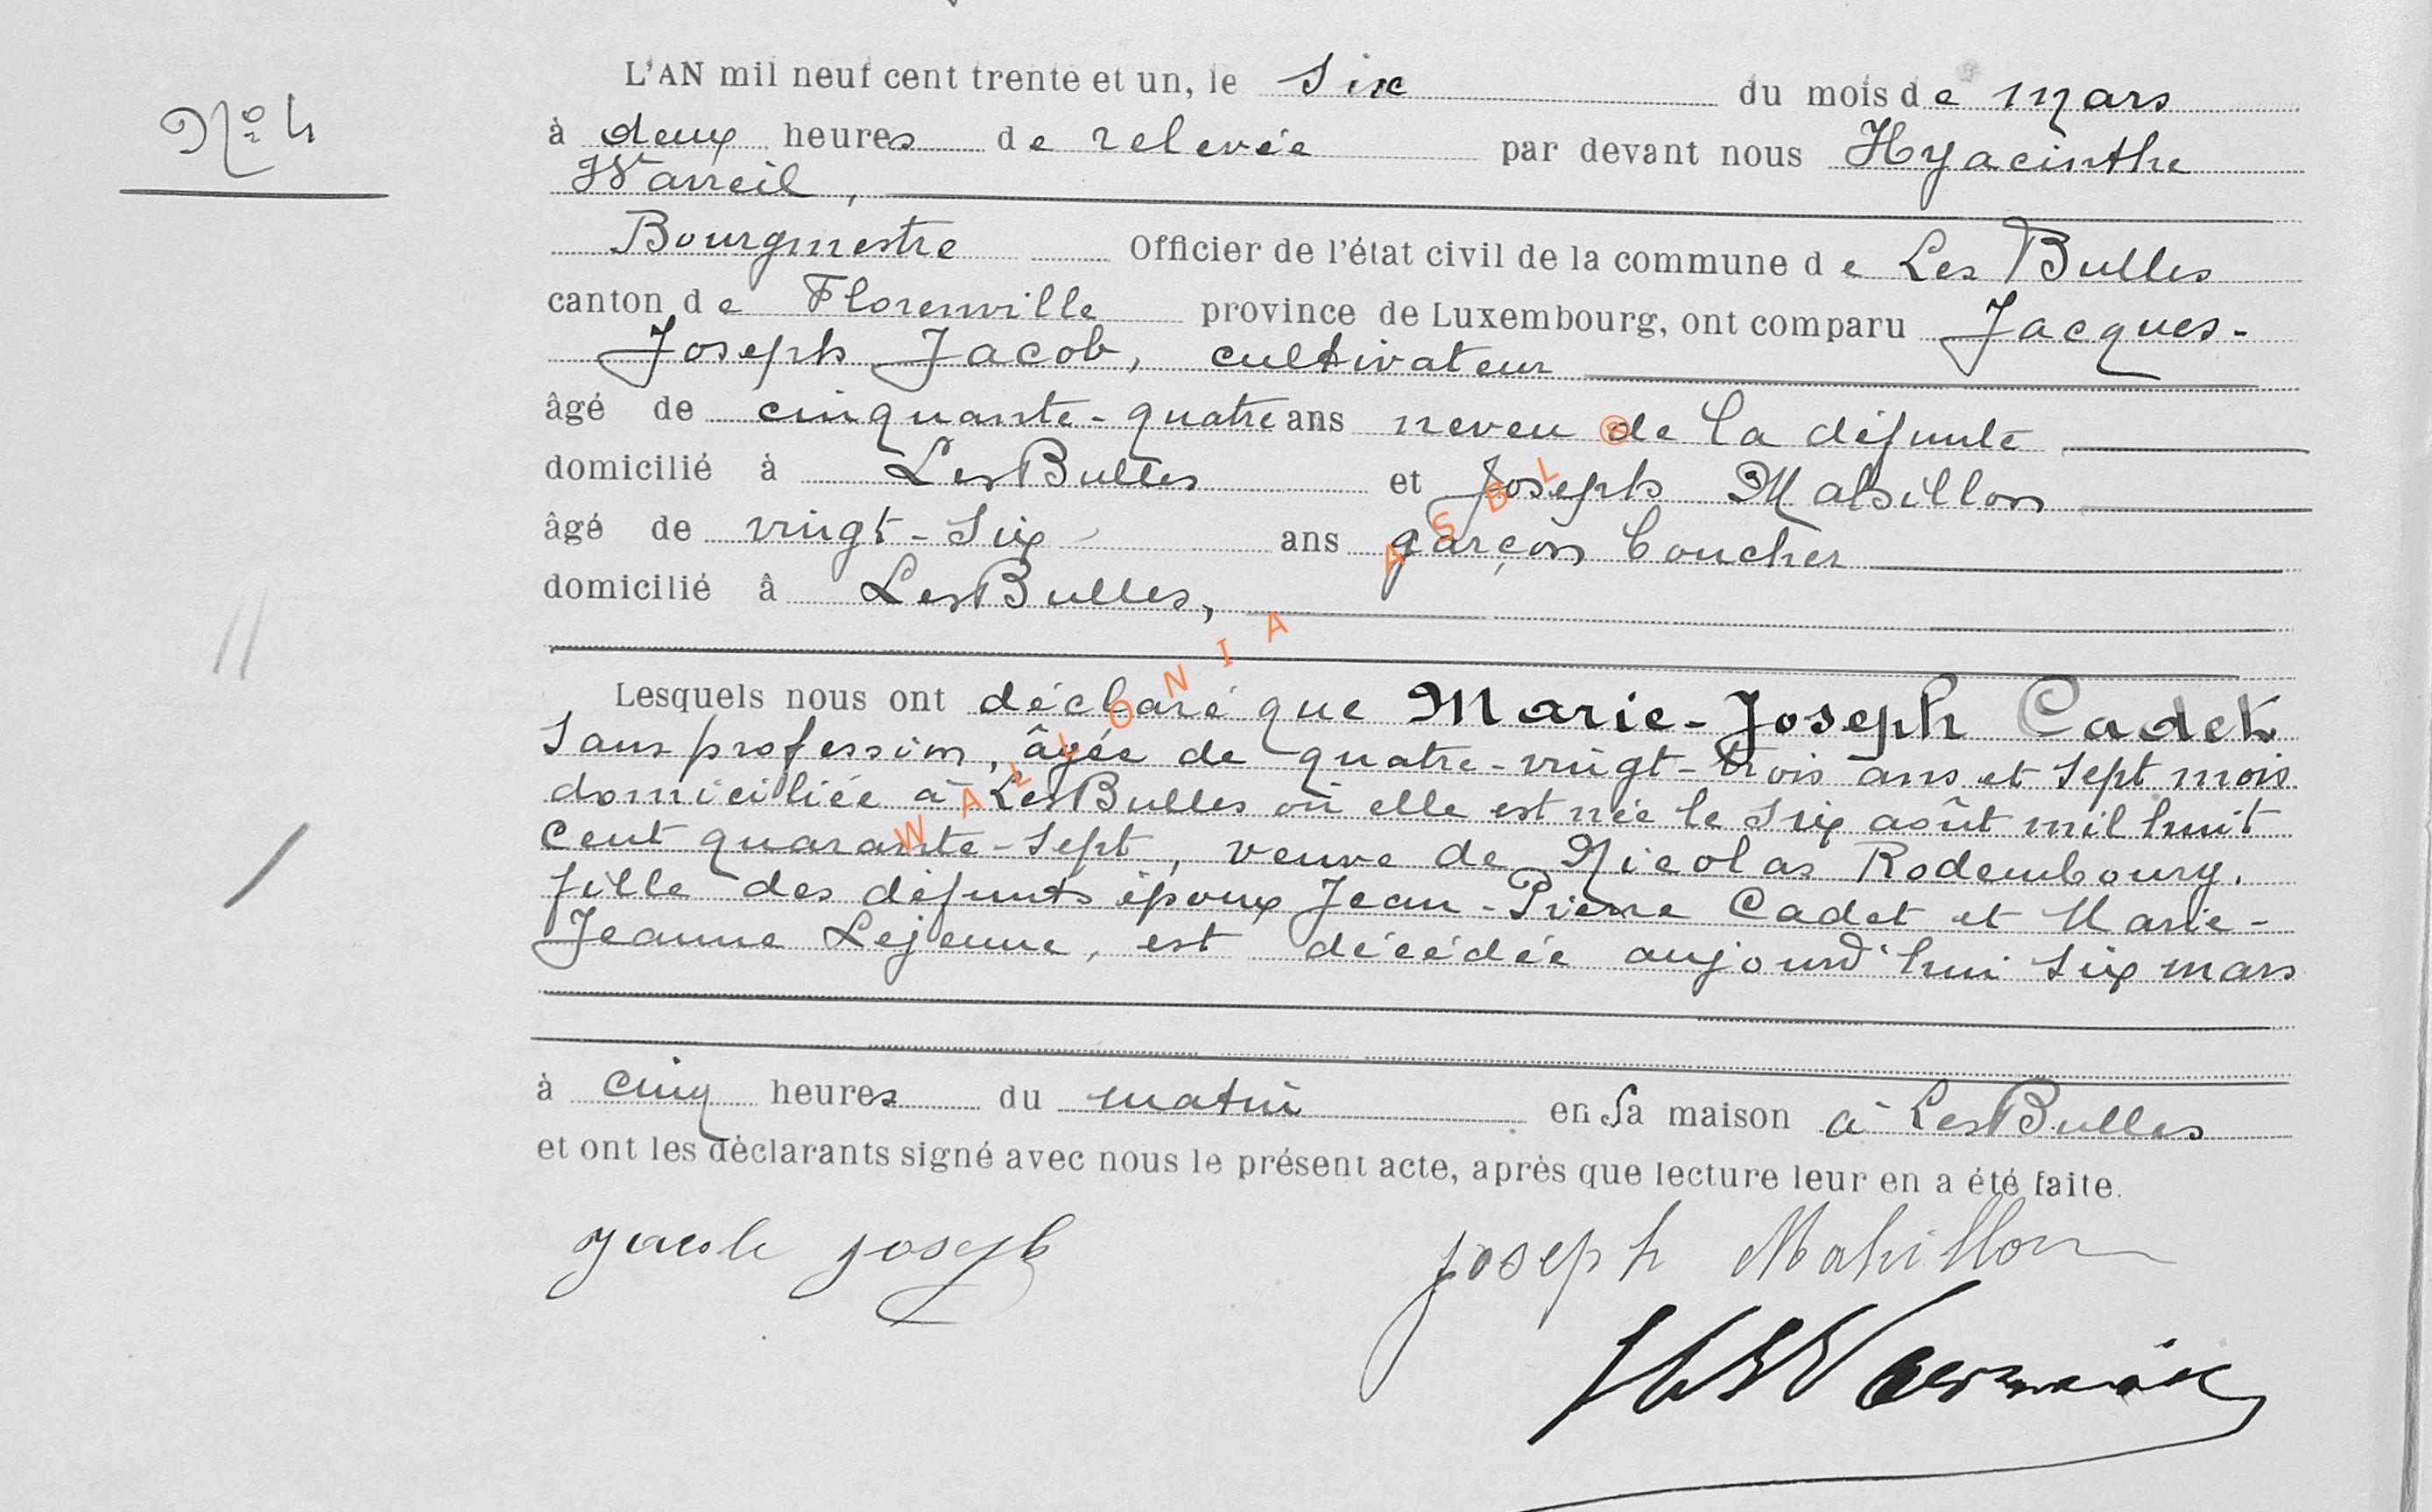 L'AN mil neuf cent trente et un, le six du mois de mars
N° 4
à deux heures de relevée par devant nous Hyacinthe
Warreil,
Bourgmestre Officier de l'état civil de la commune de Les Bulles
canton de Florenville province de Luxembourg, ont comparu Jacques-
Joseph Jacob, cultivateur
âgé de cinquante-quatre ans neveu de la défunte
domicilié à Les Bulles et Joseph Mahillon
âgé de vingt-six ans garçon boucher
domicilié à Les Bulles,
Lesquels nous ont déclaré que Marie-Joseph Cadet
sans profession, âgée de quatre-vingt-trois ans et sept mois
domiciliée à Les Bulles où elle est née le six août mil huit
cent quarante-sept, veuve de Nicolas Rodembourg,
fille des défunts époux Jean-Pierre Cadet et Marie-
Jeanne Lejeune, est décédée aujourd'hui six mars
à cinq heures du matin en sa maison à Les Bulles
et ont les déclarants signé avec nous le présent acte, après que lecture leur en a été faite.
Jacob Joseph Joseph Mahillon
WALLONIA ASBL ®